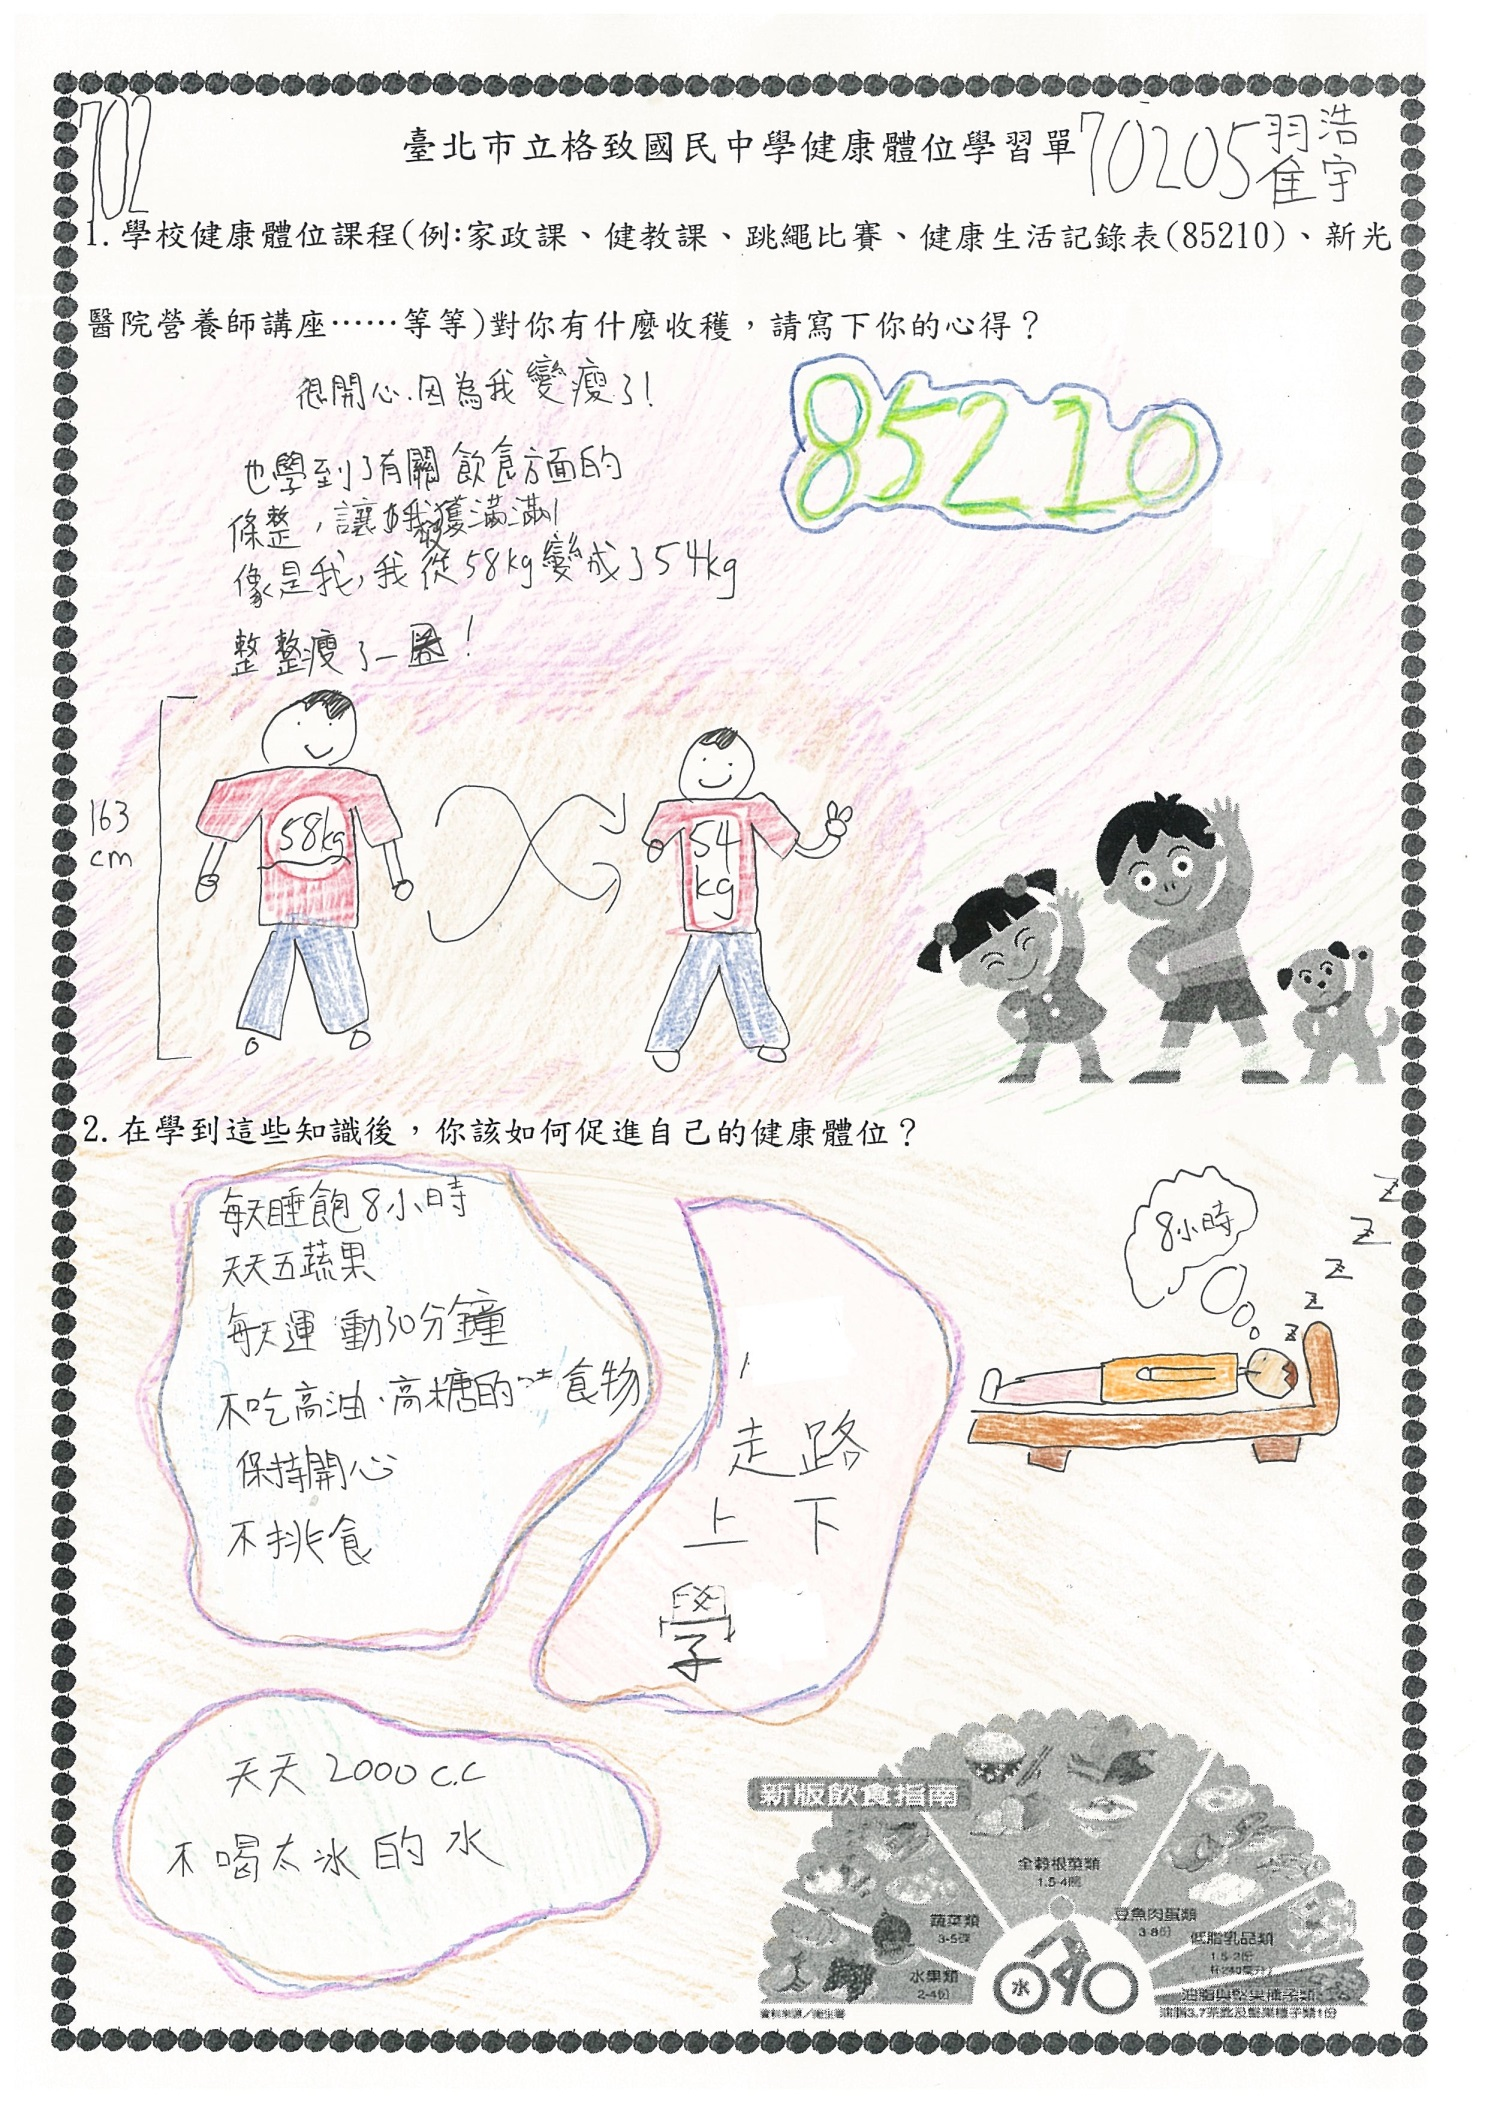 702
臺北市立格致國民中學健康體位學習單
70205 翟浩宇
1.學校健康體位課程(例:家政課、健教課、跳繩比賽、健康生活記錄表(85210)、新光
醫院營養師講座⋯⋯等等)對你有什麼收穫，請寫下你的心得？
很開心.因為我變瘦了!
85210
也學到了有關飲食方面的
條整，讓我收獲滿滿!
像是我，我從58kg變成了54kg
整整瘦了一圈!
163
cm
58kg
54
kg
2.在學到這些知識後，你該如何促進自己的健康體位？
每天睡飽8小時
天天五蔬果
每天運動30分鐘
不吃高油、高糖的食物
保持開心
不挑食
走路
上下
學
8小時
z z z z z
天天2000c.c
不喝太冰的水
新版飲食指南
全穀根莖類
1.5-4碗
蔬菜類
3-5碟
豆魚肉蛋類
3-8份
低脂乳品類
1.5-2杯
水果類
2-4份
油脂與堅果種子類
水
資料來源／衛生署
油脂3-7茶匙及堅果種子類1份